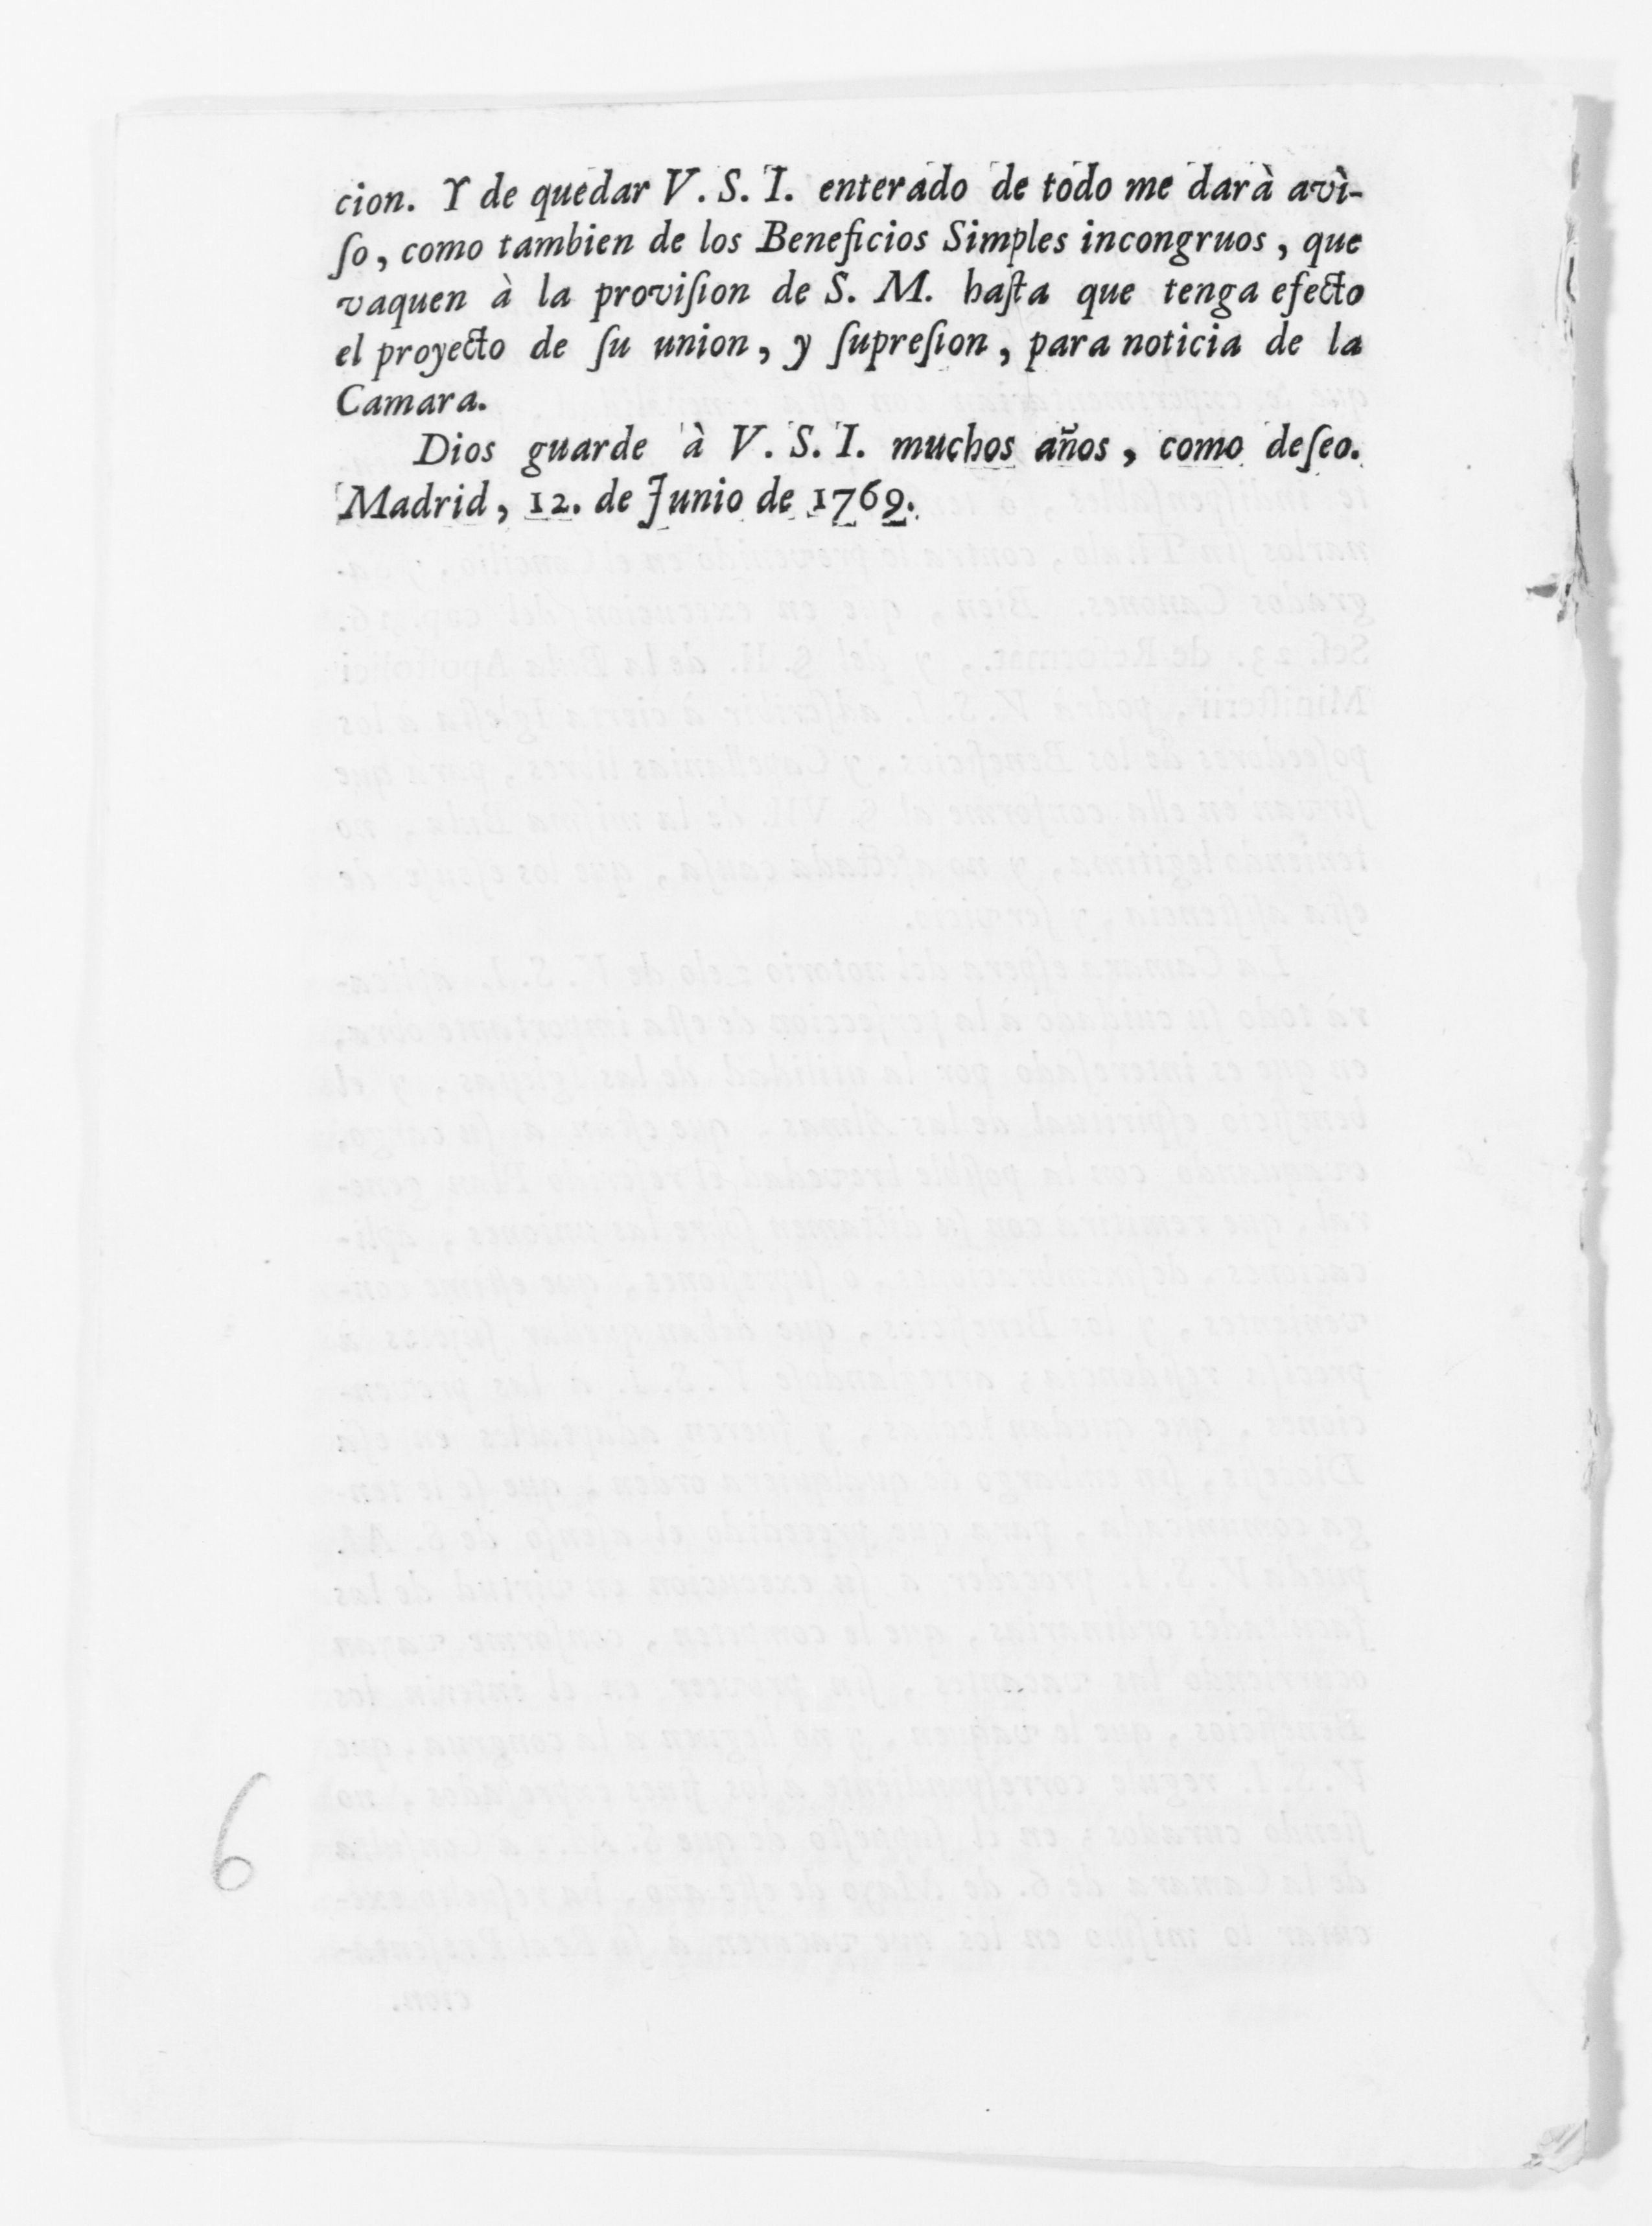 cion. Y de quedar V. S. I. enterado de todo me darà avì-
ſo, como tambien de los Beneficios Simples incongruos, que
vaquen à la proviſion de S. M. haſta que tenga efecto
el proyecto de ſu union, y ſupreſion, para noticia de la
Camara.
Dios guarde à V. S. I. muchos años, como deſeo.
Madrid, 12. de Junio de 1769.
6